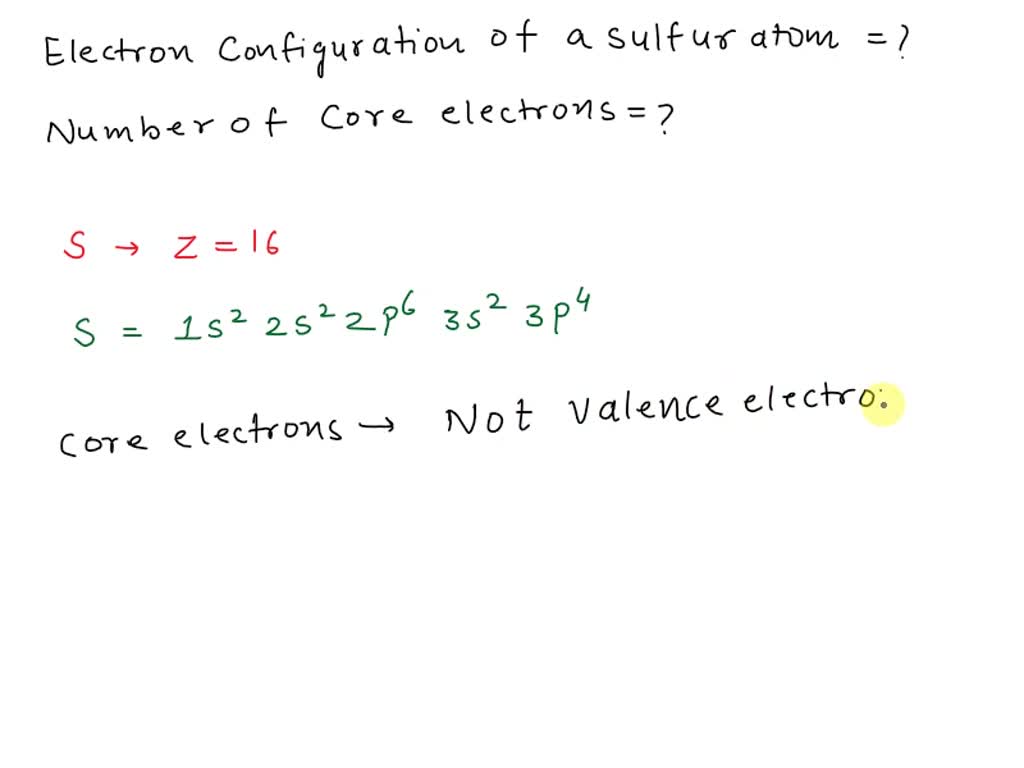 Electron Configuration of a sulfur atom = ?
Number of Core electrons = ?
S → Z = 16
S = 1s² 2s² 2p⁶ 3s² 3p⁴
Core electrons → Not valence electro